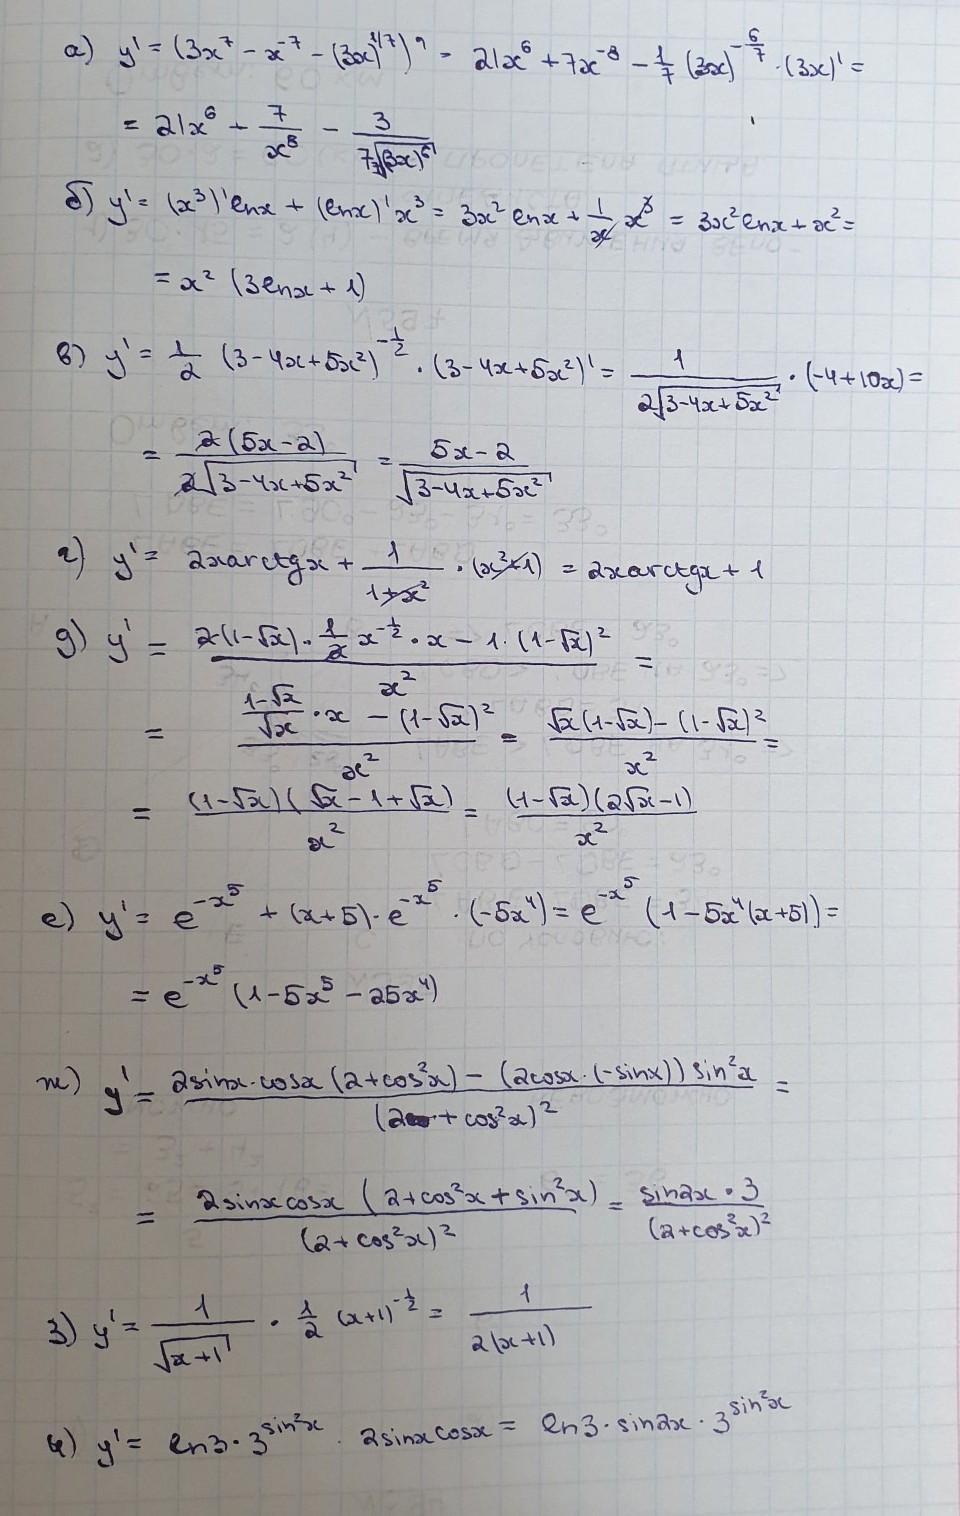 а) y' = (3x⁷ − x⁻⁷ − (3x)^{1/7})' = 21x⁶ + 7x⁻⁸ − 1/7 (3x)^{−6/7} · (3x)' =
= 21x⁶ + 7/x⁸ − 3/(7 ⁷√(3x)⁶)
б) y' = (x³)' lnx + (lnx)' x³ = 3x² lnx + 1/x x³ = 3x² lnx + x² =
= x² (3lnx + 1)
в) y' = 1/2 (3−4x+5x²)^{−1/2} · (3−4x+5x²)' = 1/(2√(3−4x+5x²)) · (−4+10x) =
= 2(5x−2)/(2√(3−4x+5x²)) = (5x−2)/√(3−4x+5x²)
г) y' = 2xarctgx + 1/(1+x²) · (x²+1) = 2xarctgx + 1
д) y' = (2·(1−√x)·1/2 x^{−1/2} · x − 1·(1−√x)²)/x² =
= ((1−√x)/√x · x − (1−√x)²)/x² = (√x(1−√x) − (1−√x)²)/x² =
= (1−√x)(√x − 1 + √x)/x² = (1−√x)(2√x−1)/x²
е) y' = e^{−x⁵} + (x+5)·e^{−x⁵} · (−5x⁴) = e^{−x⁵} (1−5x⁴(x+5)) =
= e^{−x⁵} (1−5x⁵ − 25x⁴)
ж) y' = (2sinx·cosx (2+cos²x) − (2cosx·(−sinx)) sin²x)/(2+cos²x)² =
= 2sinxcosx (2+cos²x+sin²x)/(2+cos²x)² = sin2x · 3/(2+cos²x)²
з) y' = 1/√(x+1) · 1/2 (x+1)^{−1/2} = 1/(2(x+1))
и) y' = ln3·3^{sin²x} · 2sinxcosx = ln3·sin2x·3^{sin²x}